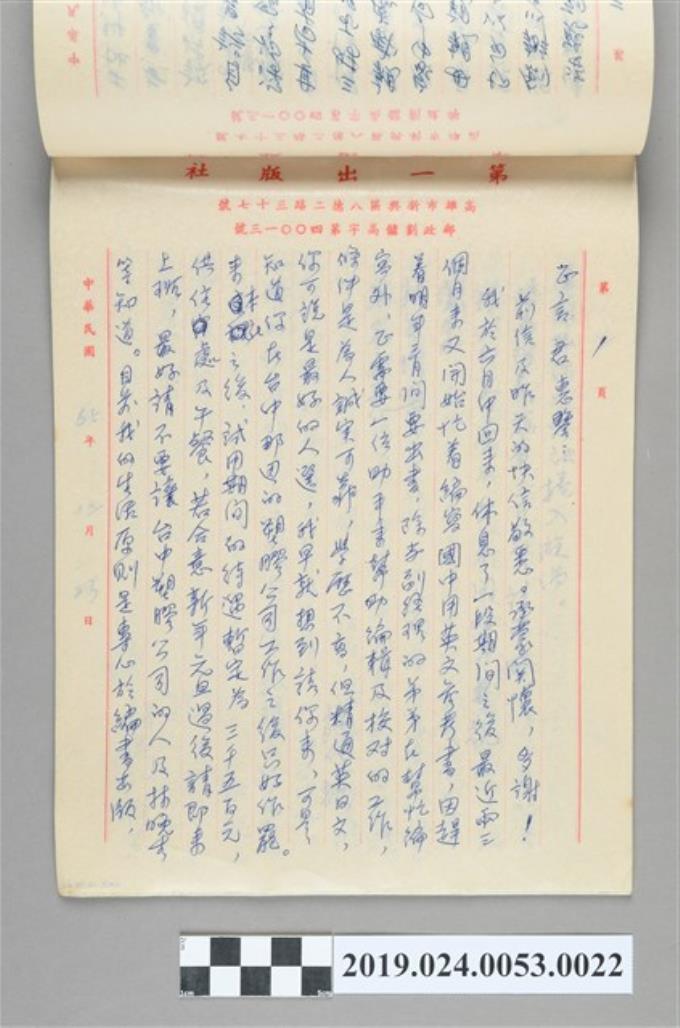 第一出版社
高雄市新興區八德二路三十七號
郵政劃儲高字第四〇〇一三號
第 1 頁
正言君惠鑒
前信及昨天的快信敬悉。承蒙関懷,多謝!
我於六月中回來,休息了一段期間之後最近兩三
個月来又開始忙着編寫國中用英文参考書,因趕
着明年二月間要出書,除李副経理的弟弟在幫忙編
寫外,正需要一位助手来幫助編輯及校对的工作,
條件是為人誠実可靠,學歷不高,但精通英日文,
你可說是最好的人選,我早就想到請你来,可是
知道你在台中那边的塑膠公司工作之後只好作罷。
来之後,試用期間的待遇暫定為三千五百元,
供住處及午餐,若合意新年元旦過後請即来
上班,最好請不要讓台中塑膠公司的人及林晚生
等知道。目前我的生活原則是專心於編書出版,
中華民國 65 年 12 月 23 日
2019.024.0053.0022